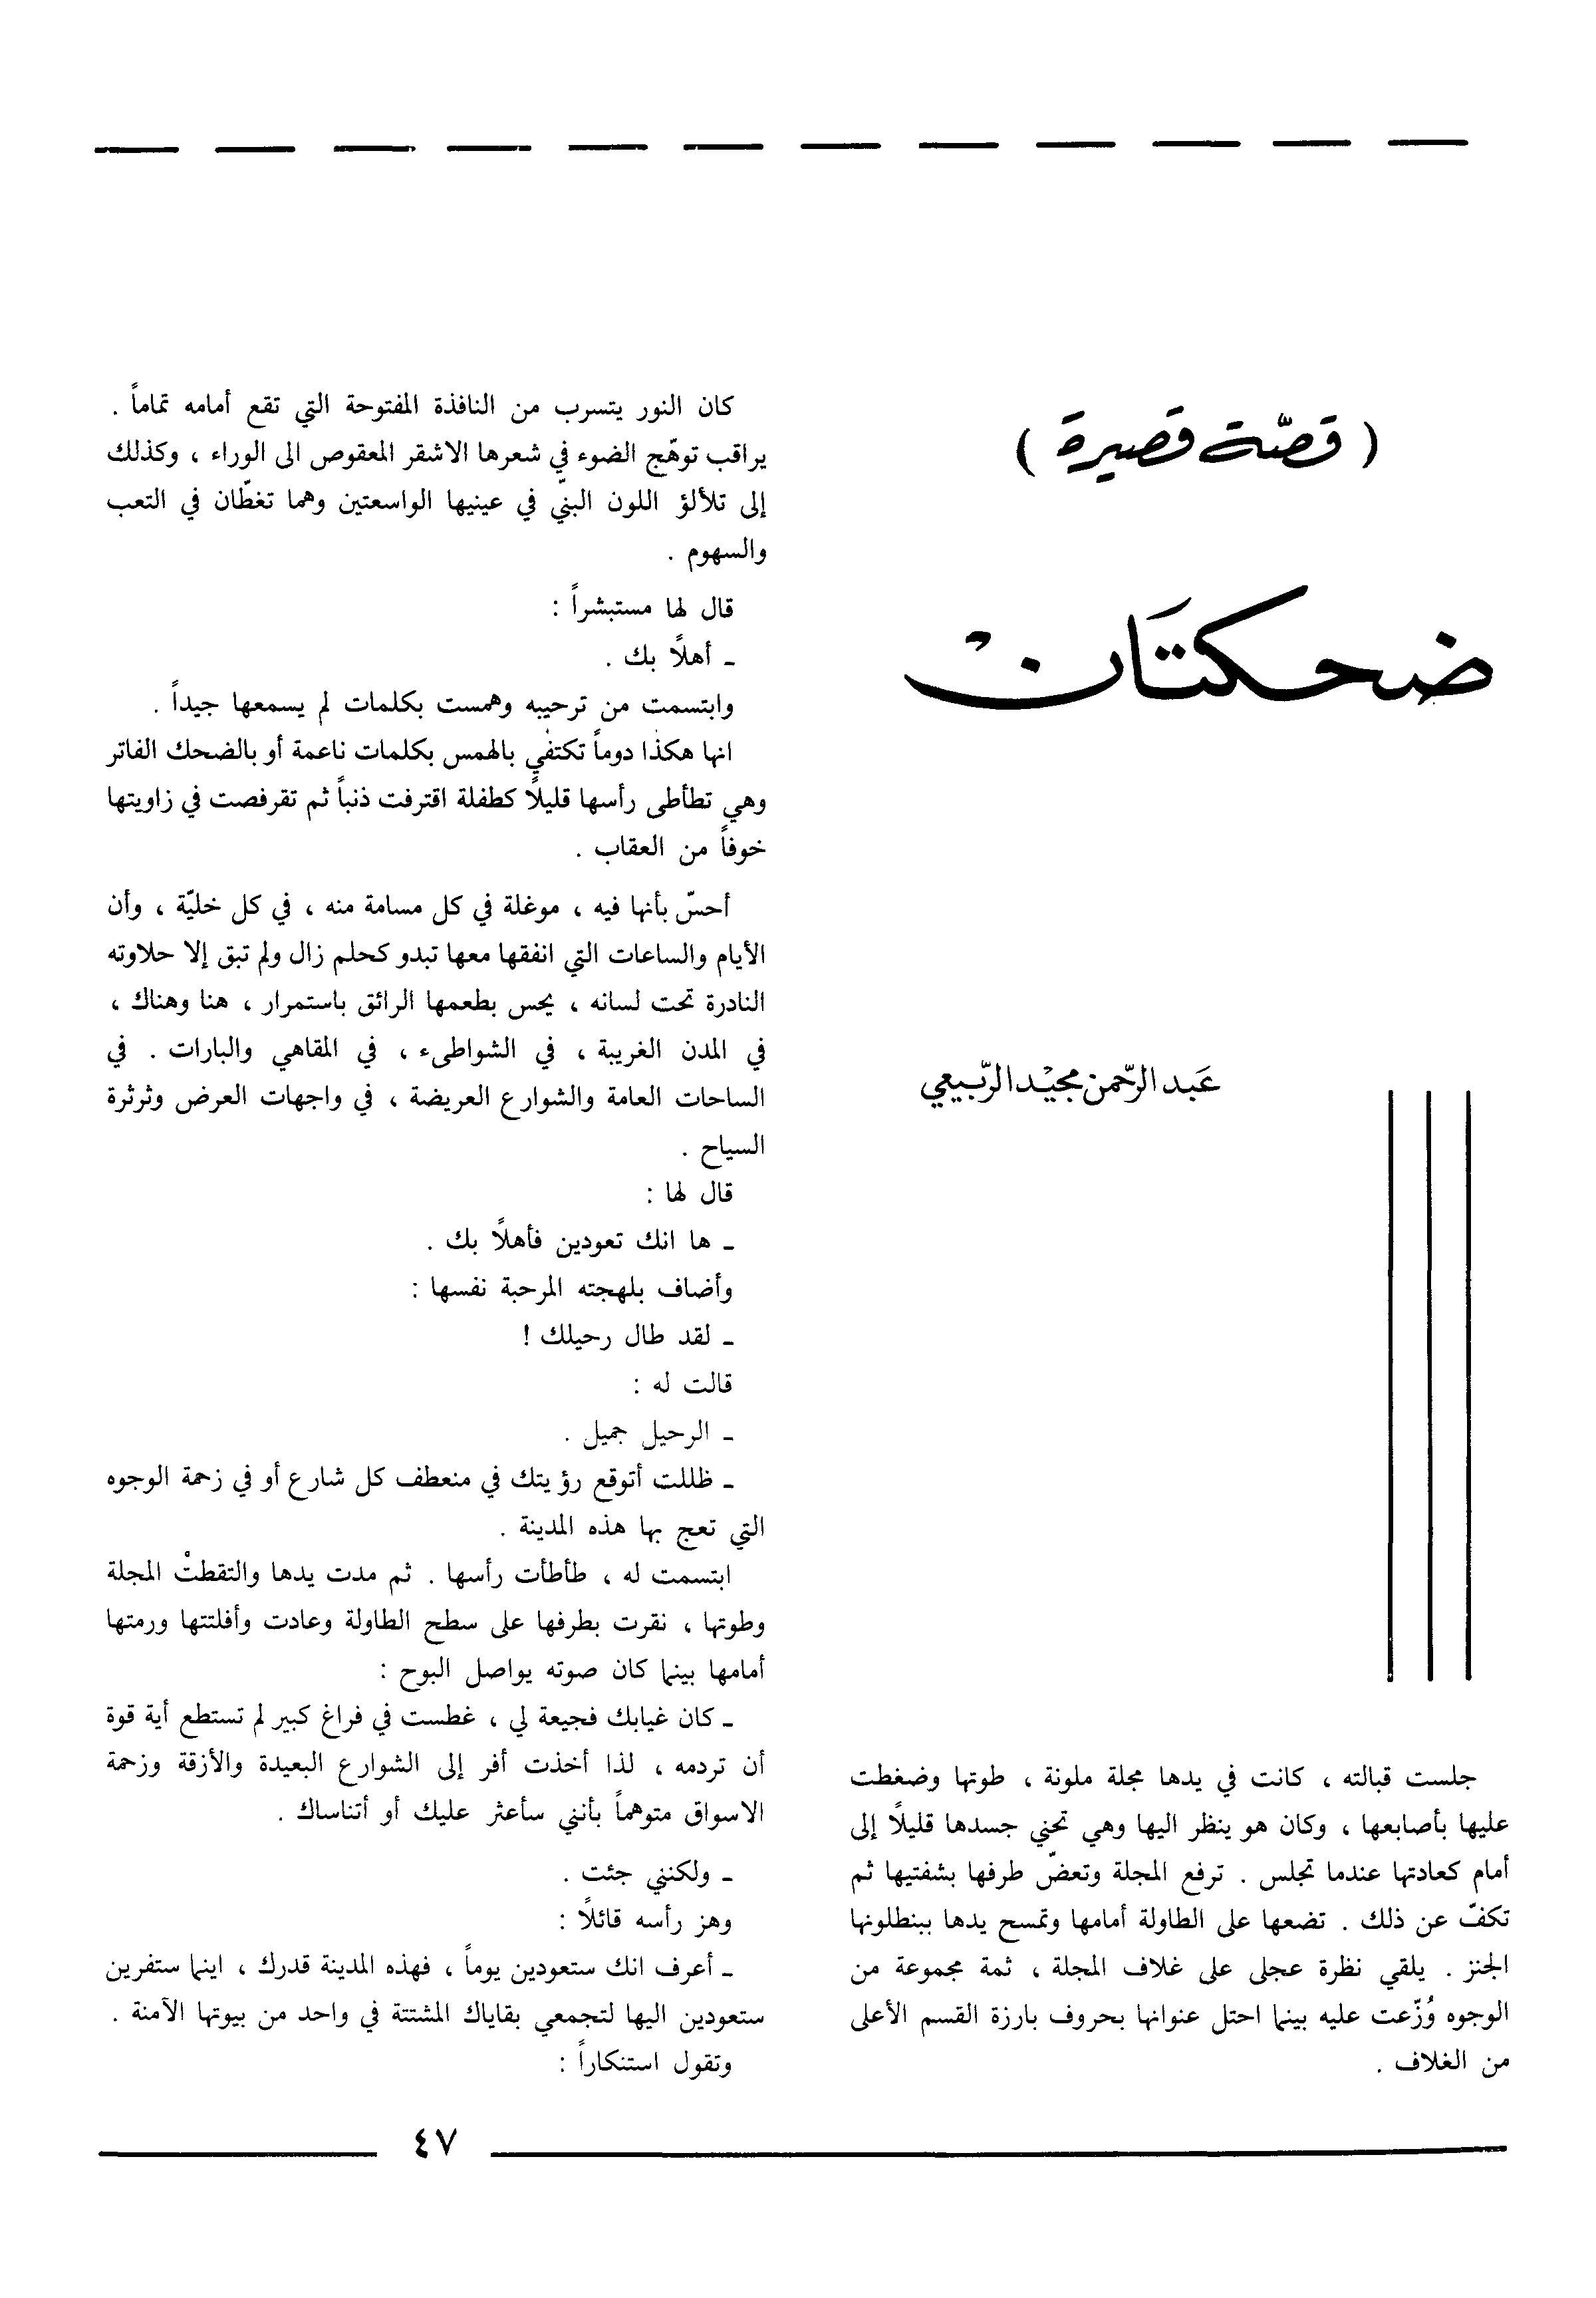 ( قصّة قصيرة )
ضحكتَان
عَبد الرّحمن مجيْد الرّبيعي
جلست قبالته ، كانت في يدها مجلة ملونة ، طوتها وضغطت
عليها بأصابعها ، وكان هو ينظر اليها وهي تحني جسدها قليلاً إلى
أمام كعادتها عندما تجلس . ترفع المجلة وتعضّ طرفها بشفتيها ثم
تكفّ عن ذلك . تضعها على الطاولة أمامها وتمسح يدها ببنطلونها
الجنز . يلقي نظرة عجلى على غلاف المجلة ، ثمة مجموعة من
الوجوه وُزّعت عليه بينما احتل عنوانها بحروف بارزة القسم الأعلى
من الغلاف .
كان النور يتسرب من النافذة المفتوحة التي تقع أمامه تماماً .
يراقب توهّج الضوء في شعرها الاشقر المعقوص الى الوراء ، وكذلك
إلى تلألؤ اللون البنيّ في عينيها الواسعتين وهما تغطّان في التعب
والسهوم .
قال لها مستبشراً :
ـ أهلاً بك .
وابتسمت من ترحيبه وهمست بكلمات لم يسمعها جيداً .
انها هكذا دوماً تكتفي بالهمس بكلمات ناعمة أو بالضحك الفاتر
وهي تطأطى رأسها قليلاً كطفلة اقترفت ذنباً ثم تقرفصت في زاويتها
خوفاً من العقاب .
أحسّ بأنها فيه ، موغلة في كل مسامة منه ، في كل خليّة ، وأن
الأيام والساعات التي انفقها معها تبدو كحلم زال ولم تبق إلا حلاوته
النادرة تحت لسانه ، يحس بطعمها الرائق باستمرار ، هنا وهناك ،
في المدن الغريبة ، في الشواطىء ، في المقاهي والبارات . في
الساحات العامة والشوارع العريضة ، في واجهات العرض وثرثرة
السياح .
قال لها :
ـ ها انك تعودين فأهلاً بك .
وأضاف بلهجته المرحبة نفسها :
ـ لقد طال رحيلك !
قالت له :
ـ الرحيل جميل .
ـ ظللت أتوقع رؤيتك في منعطف كل شارع أو في زحمة الوجوه
التي تعج بها هذه المدينة .
ابتسمت له ، طأطأت رأسها . ثم مدت يدها والتقطتْ المجلة
وطوتها ، نقرت بطرفها على سطح الطاولة وعادت وأفلتتها ورمتها
أمامها بينما كان صوته يواصل البوح :
ـ كان غيابك فجيعة لي ، غطست في فراغ كبير لم تستطع أية قوة
أن تردمه ، لذا أخذت أفر إلى الشوارع البعيدة والأزقة وزحمة
الاسواق متوهماً بأنني سأعثر عليك أو أتناساك .
ـ ولكنني جئت .
وهز رأسه قائلاً :
ـ أعرف انك ستعودين يوماً ، فهذه المدينة قدرك ، اينما ستفرين
ستعودين اليها لتجمعي بقاياك المشتتة في واحد من بيوتها الآمنة .
وتقول استنكاراً :
٤٧